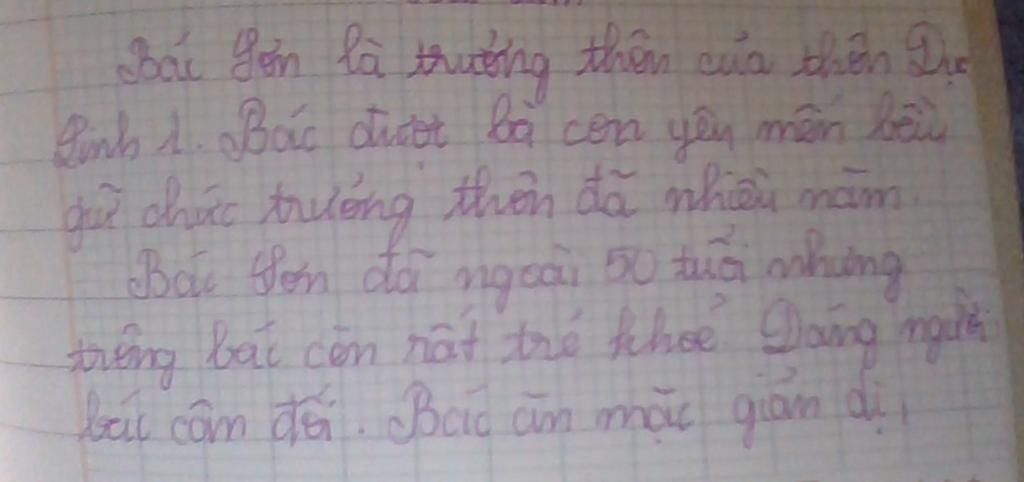 Bác Sơn là trưởng thôn của thôn Dục
Linh 1. Bác được bà con yêu mến bầu
giữ chức trưởng thôn đã nhiều năm.
Bác Sơn đã ngoài 50 tuổi nhưng
trông bác còn rất trẻ khoẻ Dáng người
bác cân đối. Bác ăn mặc giản dị,